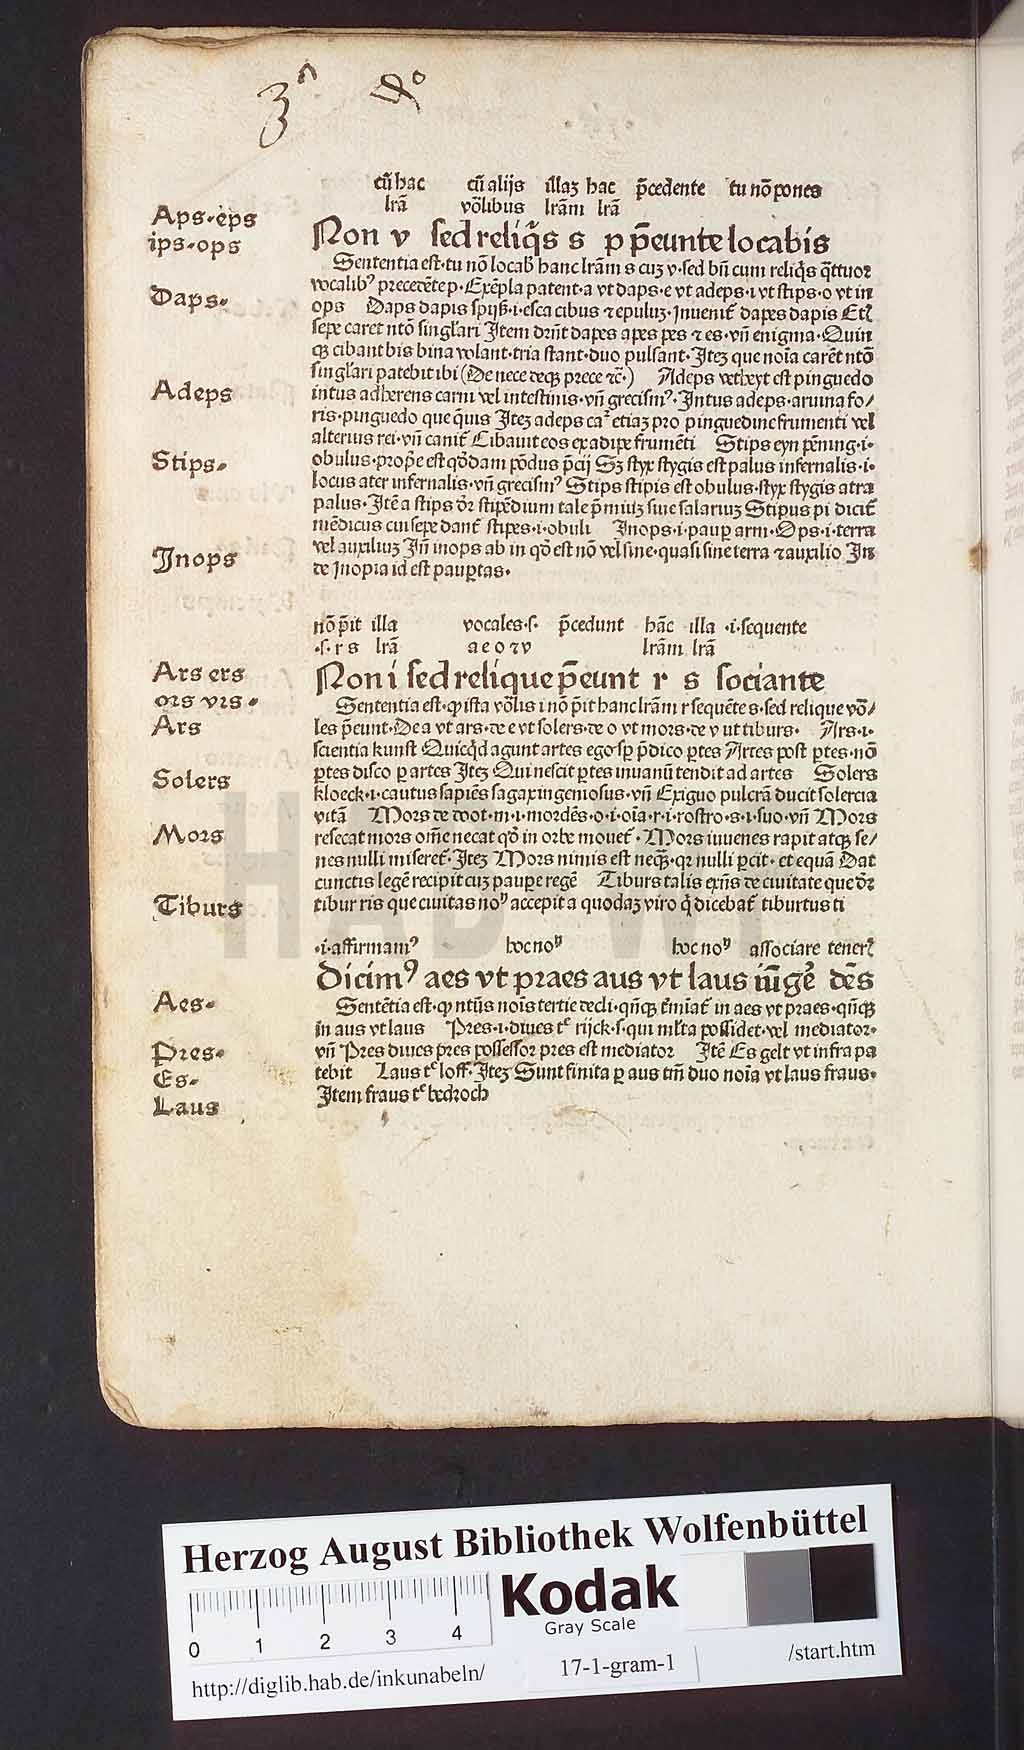 cū hac cū alijs illaʒ hac p̄cedente tu nō pones
lrā vōlibus lrām lrā
Aps·eps
ips·ops
Non v sed reliq̄s s p p̄eunte locabis
Sententia est·tu nō locab̄ hanc lrām s cuʒ v·sed bn̄ cum reliq̄s q̄ttuor
vocalibꝰ precedēte p·Exēpla patent·a vt daps·e vt adeps·i vt stips·o vt in
Daps·
ops Daps dapis spijß·i·esca cibus ⁊ epuluʒ·Inuenit᷑ dapes dapis Etꝭ
sepe caret ntō singl'ari Item drn̄t dapes apes pes ⁊ es·vn̄ enigma·Quin
qꝫ cibant bis bina volant·tria stant·duo pulsant·Iteʒ que noīa carēt ntō
singl'ari patebit ibi (De nece deqꝫ prece ⁊c̄·) Adeps vetheyt est pinguedo
Adeps
intus adherens carni vel intestinis·vn̄ grecismꝰ·Intus adeps·aruina fo/
ris·pinguedo que q̄uis Iteʒ adeps caᷣ etiaʒ pro pinguedine frumenti vel
alterius rei·vn̄ canit᷑ Cibauit eos ex adipe frumēti Stips eyn pēning·i·
Stips·
obulus·prop̄e est qōdam pōdus p̄cij Sʒ styx stygis est palus infernalis·i·
locus ater infernalis·vn̄ grecismꝰ Stips stipis est obulus·styx stygis atra
palus·Itē a stips dr̄ stipēdium tale p̄miuʒ siue salariuʒ Stipus pi dicit᷑
mēdicus cui sepe dant᷑ stipes·i·obuli Inops·i·paup̱ arm·Ops·i·terra
Inops
vel auxiliuʒ In̄ inops ab in qō est nō vel sine·quasi sine terra ⁊ auxilio In
de inopia id est paup̱tas·
nō p̄it illa vocales·s· p̄cedunt hāc illa ·i·sequente
·s·r s lrā a e o ⁊ v lrām lrā
Ars ers
ors vrs·
Non i sed relique p̄eunt r s sociante
Sententia est·ꝙ ista vōlis i nō p̄it hanc lrām r sequēte s·sed relique vō/
Ars
les p̄eunt·De a vt ars·de e vt solers·de o vt mors·de v ut tiburs· Ars·i·
scientia kunst Quicq̄d agunt artes ego sp̱ p̄dico p̱tes Artes post p̱tes·nō
p̱tes disco p̱ artes Iteʒ Qui nescit p̱tes inuanū tendit ad artes Solers
Solers
kloeck·i·cautus sapiēs sagax ingeniosus·vn̄ Exiguo pulcrā ducit solercia
vitā Mors de doot·m·i·mordēs·o·i·oīa·r·i·rostro·s·i·suo·vn̄ Mors
Mors
resecat mors om̄e necat qō in orbe mouet᷑·Mors iuuenes rapit atqꝫ se/
nes nulli miseret᷑·Iteʒ Mors nimis est neqꝫ·qr nulli p̱cit·et equā Dat
cunctis legē recipit cuʒ paup̱e regē Tiburs talis exn̄s de ciuitate que dr̄
Tiburs
tibur ris que ciuitas noᷤ accepit a quodaʒ viro q̄ dicebat᷑ tiburtus ti
·i·affirmamꝰ hoc noᷤ hoc noᷤ associare tenerꝭ
Dicimꝰ aes vt praes aus vt laus iūge᷑ dēs
Aes·
Sentētia est·ꝙ ntūs nois tertie decli·qn̄qꝫ t᷑miat᷑ in aes vt praes·qn̄qꝫ
in aus vt laus Pres·i·diues tͤ rijck·s·qui ml'ta possidet·vel mediator·
Pres·
vn̄ Pres diues pres possessor pres est mediator Itē Es gelt vt infra pa
Es·
tebit Laus tͤ loff·Iteʒ Sunt finita p̱ aus tm̄ duo noīa vt laus fraus·
Laus
Item fraus tͤ bedroch
Herzog August Bibliothek Wolfenbüttel
0 1 2 3 4
Kodak
Gray Scale
http://diglib.hab.de/inkunabeln/
17-1-gram-1
/start.htm